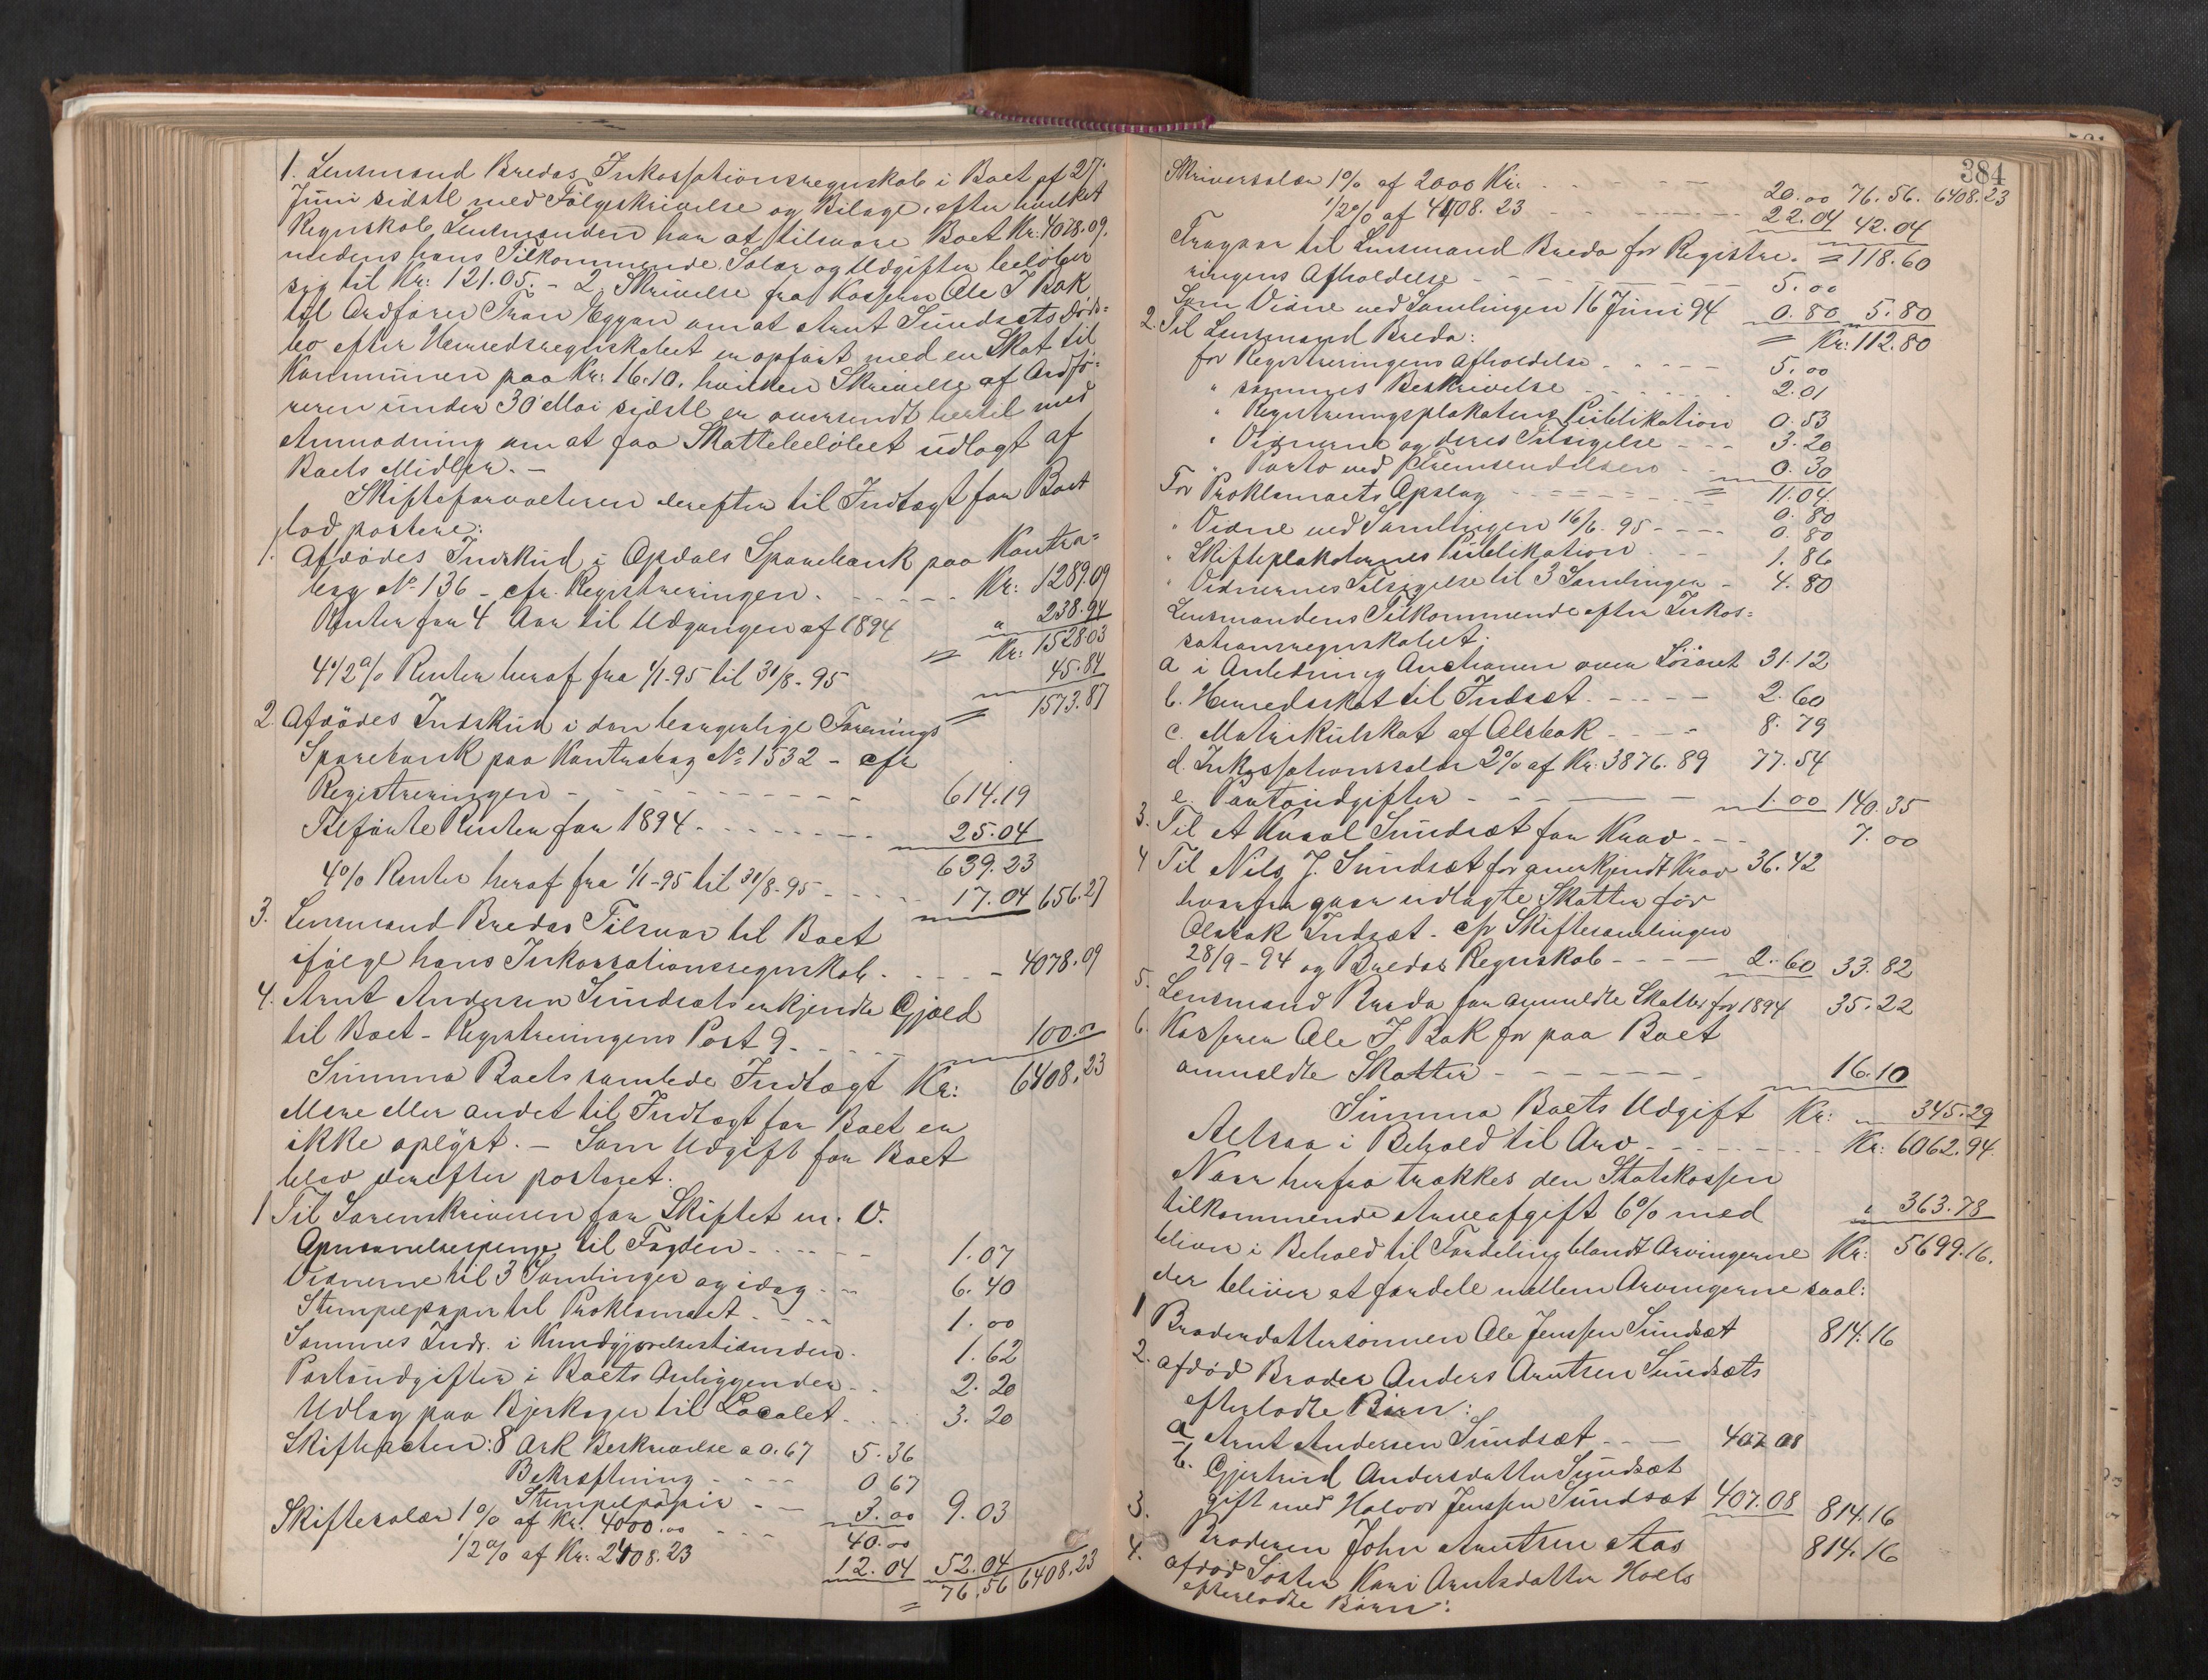 1. Lensmand Bredas Inkassationsregnskab i Boet af 27.
Juni sidstl med Følgeskrivelse og Bilage, efter hvilket
Regnskab Lensmanden har at tilsvare Boet Kr. 4078.09.
medens hans Tilkommende Salær og Udgifter beløber
sig til Kr: 121.05. - 2, Skrivelse fra Kasserer Ole J Bak
til Ordfører Tron Eggan om at Arnt Sundsets døds=
bo efter Herredsregnskabet er opført med en Skat til
Kommunen paa Kr: 16.10, hvilken Skrivelse af Ordfø=
reren under 30 Mai sidstl er oversendt hertil med
Anmodning om at faa Skattebeløbet udlagt af
Boets Midler. -
Skifteforvalteren derefter til Indtægt for Boet
lod postere:
1. Afdødes Indskud i Opdals Sparebank paa Kontra=
bog No 136 - cfr. Registreringen. Kr: 1289.09
Renter for 4 Aar til Udgangen af 1894 " 238.94
= Kr: 1528.03
4 1/2 % Renter heraf fra 1/1-95 til 31/8-95 45.84
= 1573.87
2. Afdødes Indskud i den borgerlige Forenings
Sparebank paa Kontrabog No 1532 - cfr
Registreringen - 614.19
Tilførte Renter for 1894 25.04
639.23
4% Renter heraf fra 1/1-95 til 31/8-95 - 17.04 656.27
3. Lensmand Bredas Tilsvar til Boet
ifølge hans Inkassationsregnskab - 4078.09
4. Arnt Andersen Sundsets erkjendte Gjæld
til Boet - Registreringens Post 9 - 100.00
Summa Boets samlede Indtægt Kr: 6408.23
Mere eller andet til Indtægt for Boet er
ikke oplyst. - Som Udgift for Boet
blev derefter posteret:
1 Til Sorenskriveren for Skiftet m. V.
til Fogden - 1.07
Vidnerne til 3 Samlinger og idag - 6.40
Stempelpapir til Proklamaet 1.00
Sammes Indr. i Kundgjørelsestidenden 1.62
Portoudgifter i Boets Anliggender 2.20
Udlæg paa Bjerkager til Localet 3.20
Skifteacten: 8 Ark Beskrivelse a 0.67 5.36
Bekræftning - 0 67
Stempelpapir - 3.00 9.03
Skiftesalær 1% af Kr. 4000.00 40.00
1/2 % af Kr: 2408.23 12.04 52.04
= 76.56 6408.23
384
Skriversalær 1% af 2000 Kr: 20.00 76.56. 6408.23
1/2 % af 4408.23 22.04 42.04
= 118.60
Fragaar til Lensmand Breda for Registre=
ringens Afholdelse - 5.00
Som Vidne ved Samlingen 16 Juni 94 0.80 5.80
= Kr: 112.80
2. Til Lensmand Breda:
for Registreringens Afholdelse 5.00
" sammes Beskrivelse 2.01
" Registreringsplakatens Publikation 0.53
" Vidnerne og deres Tilsigelse - 3.20
" Porto ved Fremsendelsen 0.30
= 11.04.
For Proklamaets Opslag 0.80
" Vidne ved Samlingen 16/6. 95 - 0.80
" Skifteplakaternes Publikation 1.86
" Vidnernes Tilsigelse til 3 Samlinger - 4.80
Lensmandens Tilkommende efter Inkas=
sationsregnskabet:
a i Anledning Auctionen over Løsøret 31.12
b. Herredsskat til Indset 2.60
c. Matrikulskat af Olsbak 8.79
d. Inkassationssalær 2% af Kr. 3876.89 77.54
e. Portoudgifter 1.00 140.35
3. Til Sundset for Krav - 7.00
4 Til Nils J. Sundset for anerkjendt Krav 36.42
hvorfra gaar udlagte Skatter for
Olsbak Indset - cfr Skiftesamlingen
28/9-94 og Bredas Regnskab - 2.60 33.82
5. Lensmand Breda for anmeldte Skatter for 1894 35.22
6. Kasserer Ole J Bak for paa Boet
anmeldte Skatter 16.10
Summa Boets Udgift Kr: 345.29
Altsaa i Behold til Arv Kr: 6062.94.
Naar herfra trækkes den Statskassen
tilkommende Arveafgift 6% med " 363.78
bliver i Behold til Fordeling blandt Arvingerne Kr: 5699.16.
der bliver at fordele mellem Arvingerne saal:
1 Broderdattersønnen Ole Jenssen Sundset 814.16
2. afdød Broder Anders Arntsen Sundsets
efterladte Børn:
a Arnt Andersen Sundset 407.08
b. Gjertrud Andersdatter Sundset
gift med Halvor Jenssen Sundset 407.08 814.16
3. Broderen John Arntsen Aas 814.16
4. afdød Søster Kari Arntsdatter Hoels
efterladte Børn: